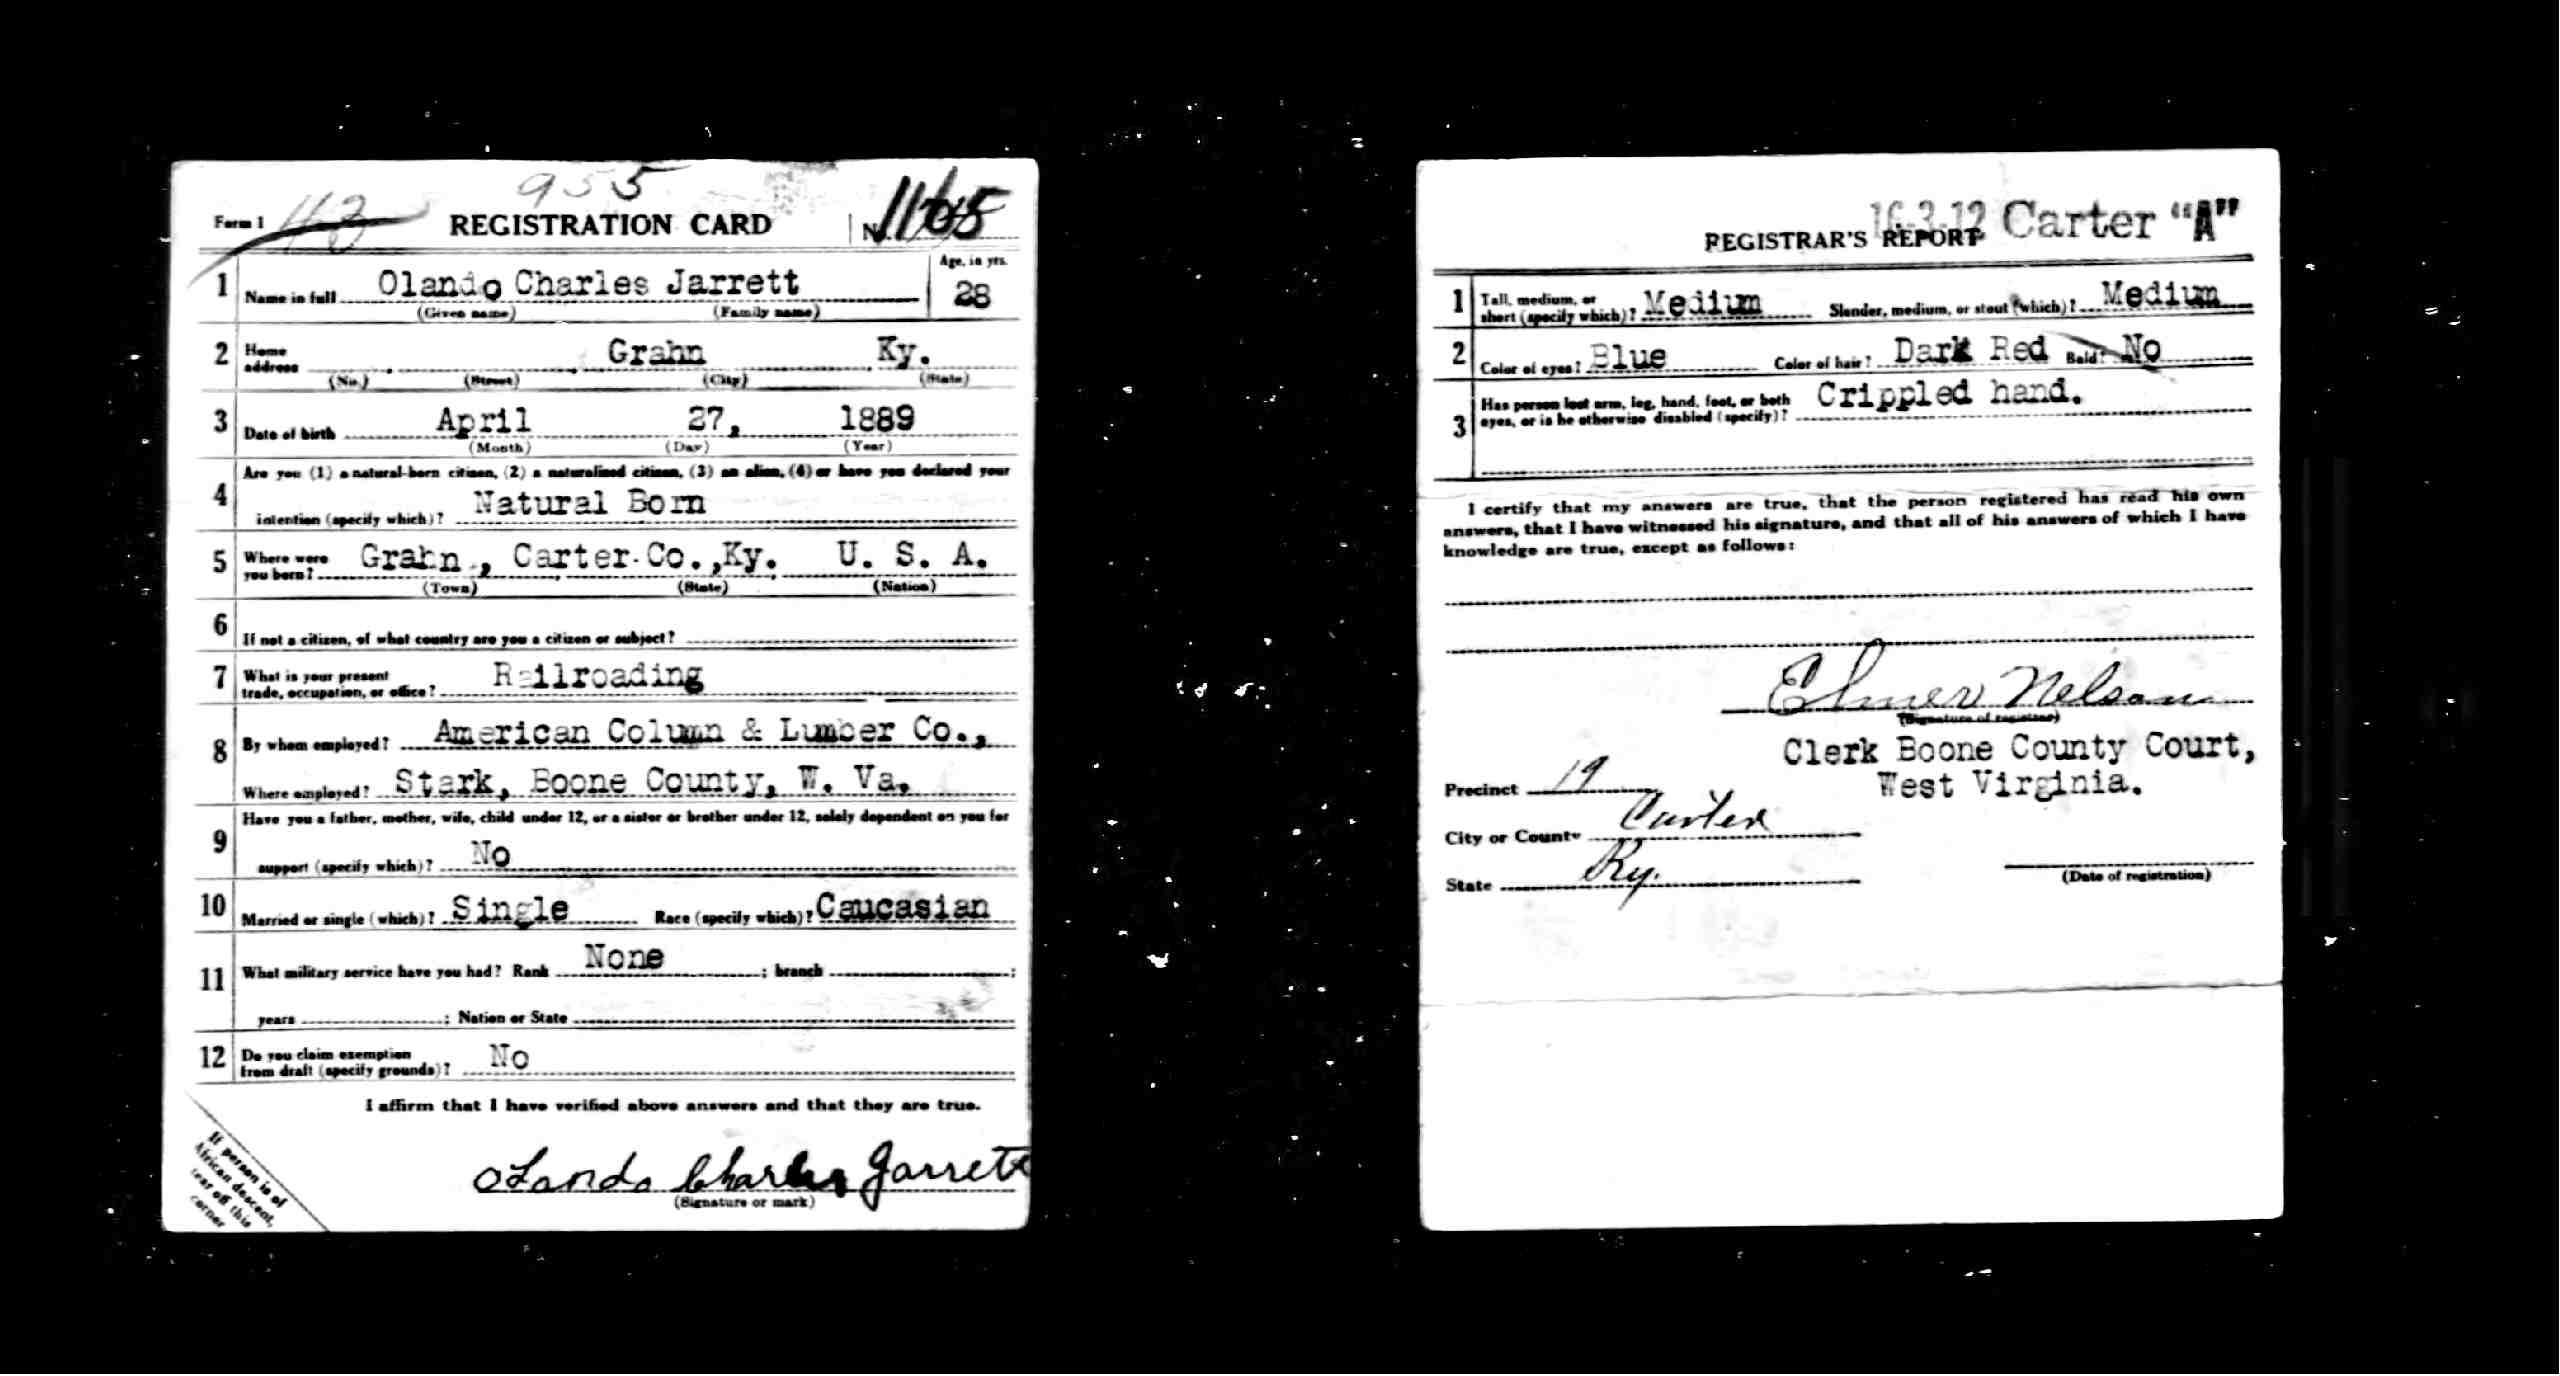 955
Form 1 REGISTRATION CARD No.
1 Name in full Olando Charles Jarrett Age, in yrs. 28
(Given name) (Family name)
2 Home address Grahn Ky.
(No.) (Street) (City) (State)
3 Date of birth April 27, 1889
(Month) (Day) (Year)
Are you (1) a natural-born citizen, (2) a naturalized citizen, (3) an alien, (4) or have you declared your
4 intention (specify which)? Natural Born
5 Where were you born? Grahn, Carter Co., Ky. U. S. A.
(Town) (State) (Nation)
6 If not a citizen, of what country are you a citizen or subject?
7 What is your present trade, occupation, or office? Railroading
8 By whom employed? American Column & Lumber Co.,
Where employed? Stark, Boone County, W. Va.
Have you a father, mother, wife, child under 12, or a sister or brother under 12, solely dependent on you for
9 support (specify which)? No
10 Married or single (which)? Single Race (specify which)? Caucasian
11 What military service have you had? Rank None ; branch ;
years ; Nation or State
12 Do you claim exemption from draft (specify grounds)? No
I affirm that I have verified above answers and that they are true.
Olando Charles Jarrett
(Signature or mark)
If person is of
African descent,
tear off this
corner
REGISTRAR'S REPORT 16-3-12 Carter "A"
1 Tall, medium, or short (specify which)? Medium Slender, medium, or stout (which)? Medium
2 Color of eyes? Blue Color of hair? Dark Red Bald? No
3 Has person lost arm, leg, hand, foot, or both eyes, or is he otherwise disabled (specify)? Crippled hand.
I certify that my answers are true, that the person registered has read his own
answers, that I have witnessed his signature, and that all of his answers of which I have
knowledge are true, except as follows:
Elmer Nelson
(Signature of registrar)
Clerk Boone County Court,
West Virginia.
Precinct 19
City or County Carter
State Ky.
(Date of registration)